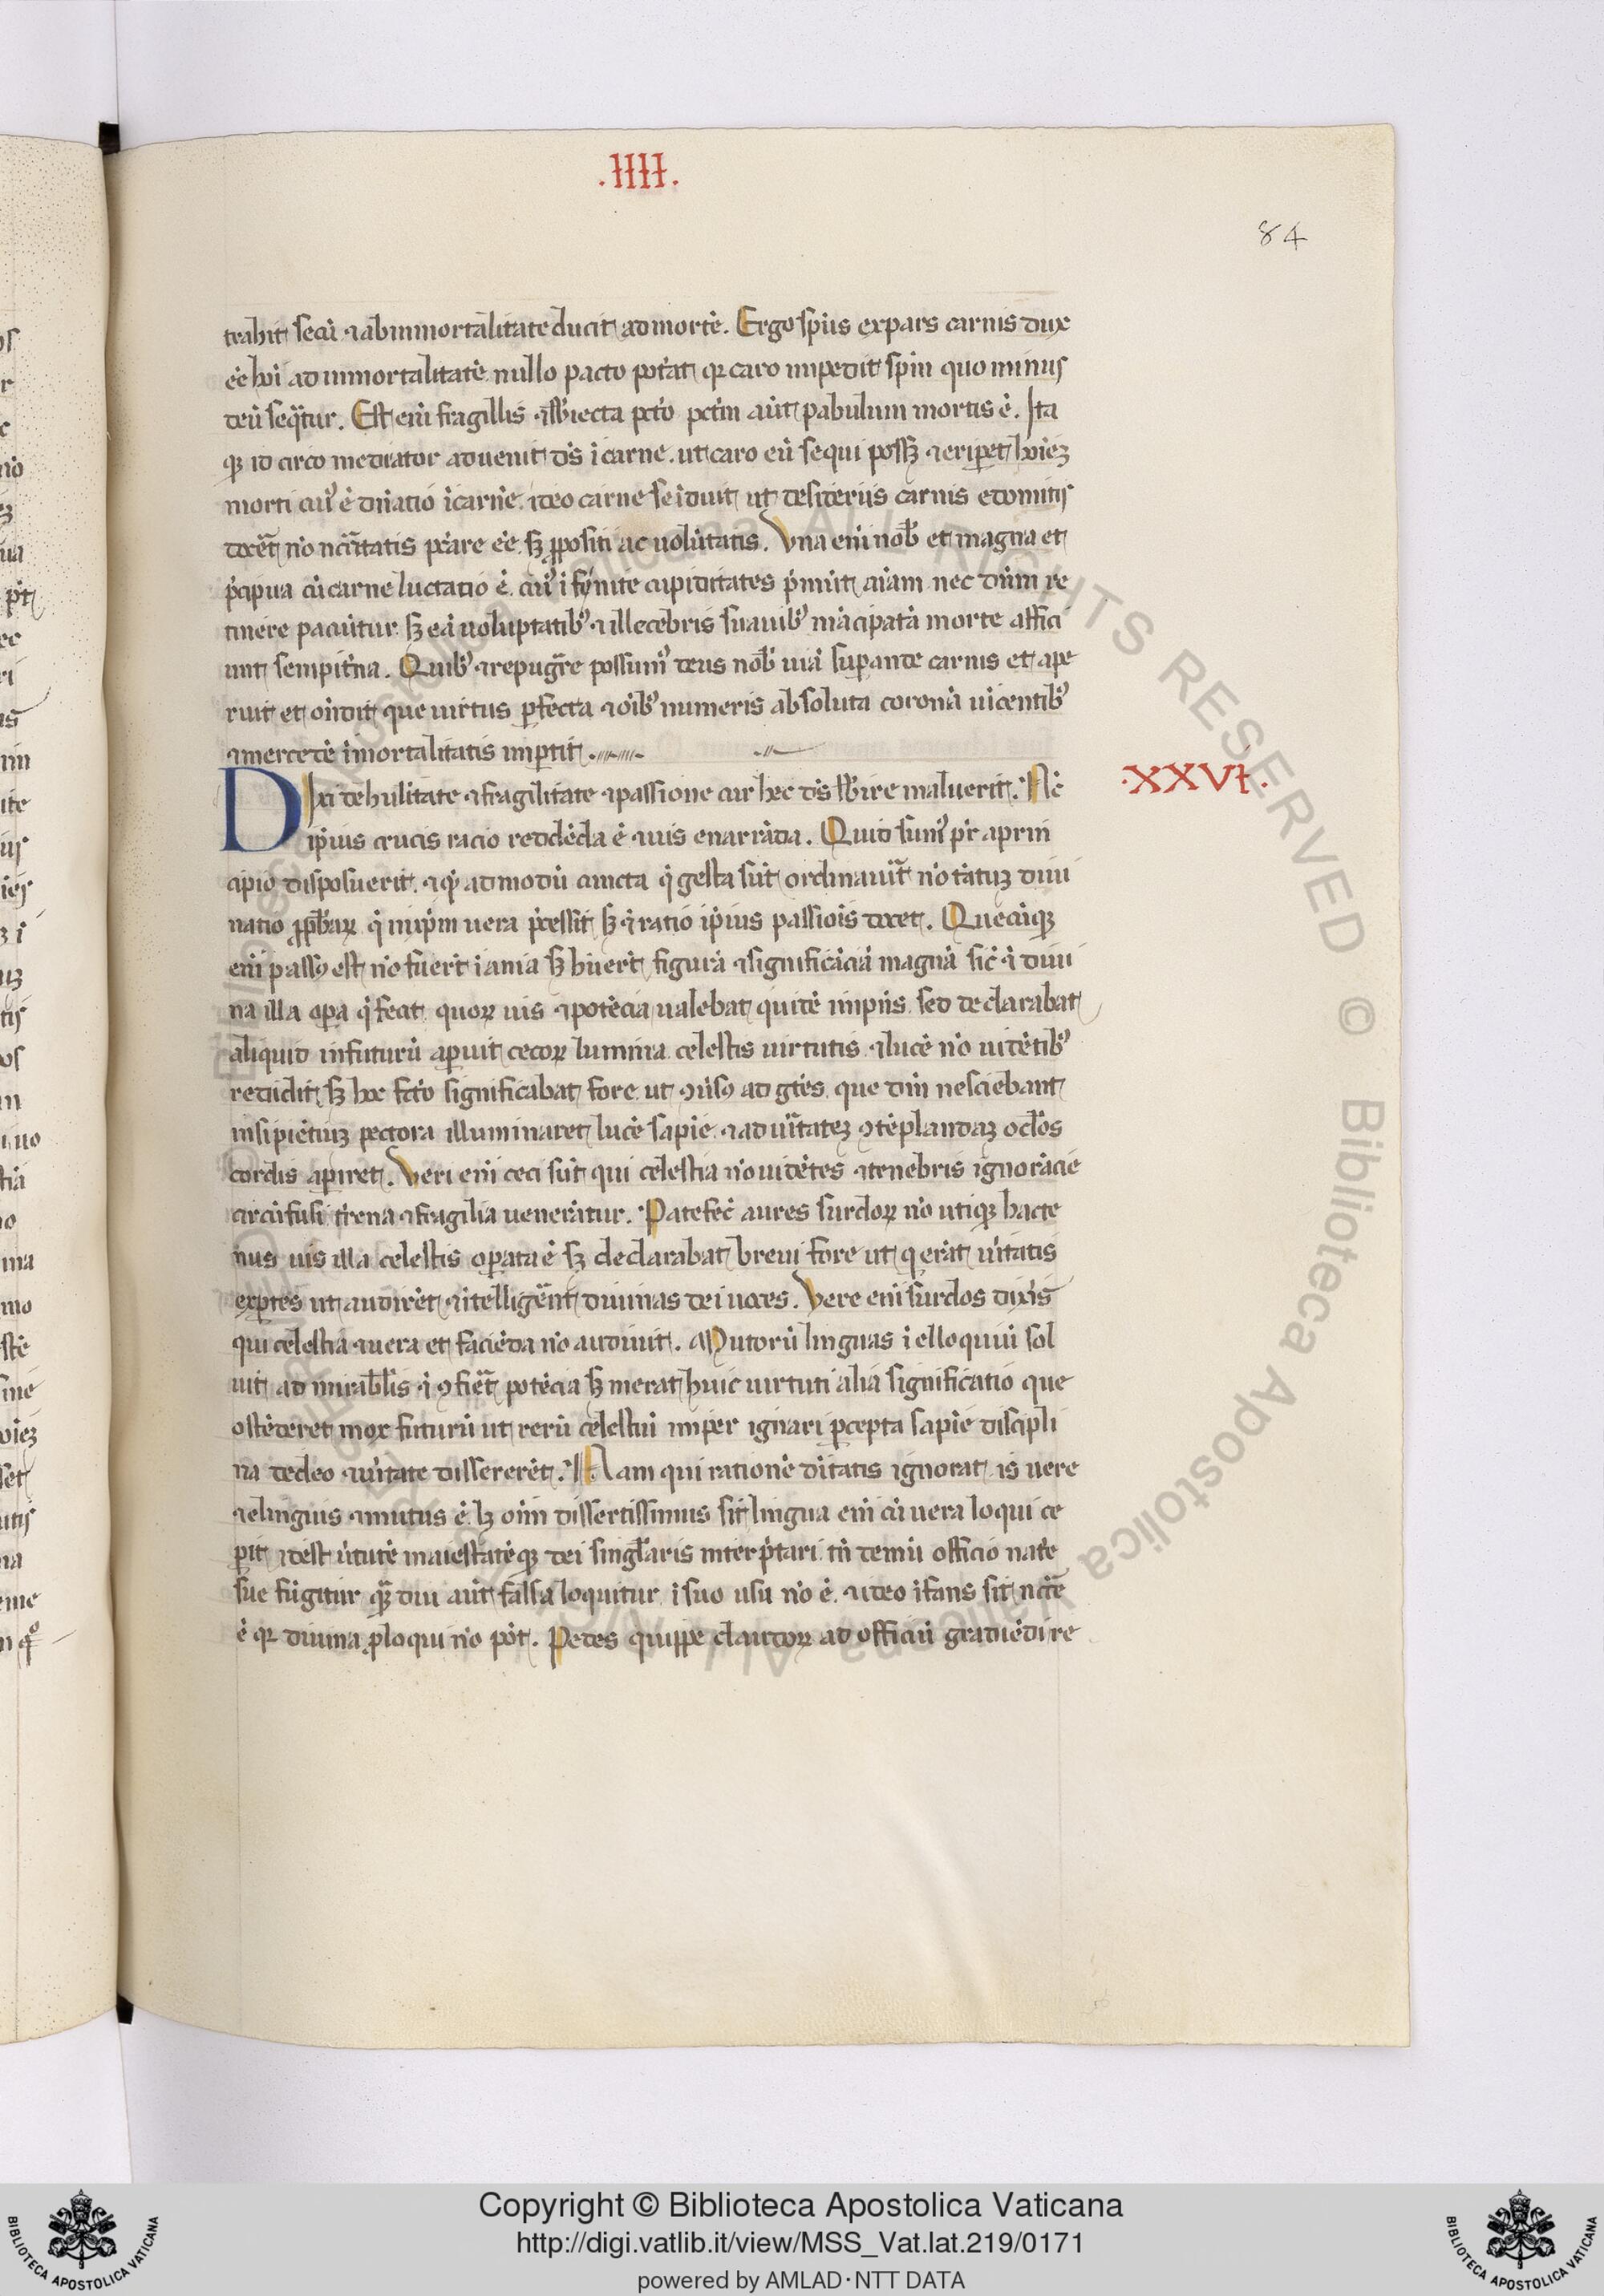 .IIII.
84
trahit secũ ⁊ ab inmortalitate ducit ad mortẽ. Ergo sp̃us expars carnis dux
eẽ hõi ad inmortalitatẽ nullo pacto potẽat qꝛ caro impedit sp̃m quo minus
deũ seq̃tur. Est eni᷑ fragillis ⁊ sb̃iecta pctõ pctm̃ aũt pabulum mortis ẽ. Ita
qꝫ id circo mediator aduenit dõs ĩ carne. ut caro eũ sequi possꝫ ⁊ eriꝑet hõiẽz
morti cuiꝰ ẽ dñatio ĩ carñe. ideo carne se ĩduit ut desideriis carnis edomitis
docẽt nõ nc̃itatis pc̃are eẽ. sꝫ ꝓpositi ac uolũtatis. Vna eni᷑ nob̃ et magna et
p̃cipua cũ carne luctatio ẽ. cuiꝰ ĩfinite cupiditates p̃mũt aĩam nec dñm re
tinere paciũtur. sꝫ eã uoluptatibꝰ ⁊ illecebris suauibꝰ mãcipatã morte affici
unt sempit̃na. Quibꝰ ⁊ repug̃re possumꝰ deus nob̃ uiã suꝑante carnis et ape
ruit et oñdit que uirtus ꝑfecta ⁊ oĩbꝰ numeris absoluta coronã uĩcentibꝰ
⁊ mercedẽ ĩmortalitatis imꝑtit.
DIxi de hũilitate ⁊ fragilitate ⁊ passione cur hec dõs sb̃ire maluerit. Nc̃
.XXVI.
ip̃ius crucis racio reddẽda ẽ ⁊ uis enarrãda. Quid sumꝰ pr̃ a prin
cipio disposuerit. ⁊ qẽ ad modũ cuncta q̃ gesta sũt ordinauit̃ nõ tãtuꝫ diui
natio ꝓph̃aꝝ q̃ in xp̃m uera p̃cessit sꝫ ⁊ ratio ip̃ius passiõis docet. Quecũqꝫ
eni᷑ passꝰ est nõ fuert̃ ĩania sꝫ hũert̃ figurã ⁊ significãciã magnã sic̃ ⁊ diui
na illa oꝑa q̃ fecit. quoꝝ uis ⁊ potẽcia ualebat quidẽ in pñs. sed declarabat
aliquid in futurũ aꝑuit cecoꝝ lumina. celestis uirtutis. ⁊ lucẽ nõ uidẽtibꝰ
reddidit. sꝫ hoc fctõ significabat fore. ut ꝯũsꝰ ad gẽtes. que dm̃ nesciebant
insipiẽtiuꝫ pectora illuminaret lucẽ sapiẽ. ⁊ ad uĩtateꝫ ꝯtẽplandaꝫ ocl̃os
cordis aꝑiret. Veri eni᷑ ceci sũt qui celestia nõ uidẽtes ⁊ tenebris ignorãcie
circũfusi tr̃ena ⁊ fragilia uenerãtur. Patefec̃ aures surdoꝝ nõ utiqꝫ hacte
nus uis illa celestis oꝑata ẽ sꝫ declarabat breui fore ut q erãt uĩtatis
exꝑtes ut audirẽt ⁊ ĩtelligẽnt diuinas dei uoces. Vere eni᷑ surdos dixĩs
qui celestia ⁊ uera et faciẽda nõ audiũt. Mutorũ linguas ĩ elloquiũ sol
uit ad mirabl̃is ⁊ ĩ ꝯfiẽt potẽcia sꝫ inerat huic uirtuti aliã significatiõ que
ostẽderet mox futurũ ut rerũ celestiũ nuper ignari ꝑcepta sapiẽ discipli
na de deo ⁊ uĩtate dissererẽt. Nam qui rationẽ dĩtatis ignorat is uere
⁊ elinguis ⁊ mutus ẽ. lꝫ oĩm dissertissimus sit lingua eni᷑ cũ uera loqui ce
ꝑit idest ũtutẽ maiestatẽqꝫ dei singl̃aris interp̃tari. tũ demũ officio natẽ
sue fũgitur qm̃ diu aũt falsa loquitur ĩ suo usu nõ ẽ. ⁊ ideo ĩfans sit nc̃e
ẽ qꝛ diuina ꝑloqui nõ põt. Pedes quippe claudoꝝ ad officiũ gradiẽdi re
Copyright © Biblioteca Apostolica Vaticana
http://digi.vatlib.it/view/MSS_Vat.lat.219/0171
powered by AMLAD·NTT DATA
BIBLIOTECA APOSTOLICA VATICANA
BIBLIOTECA APOSTOLICA VATICANA